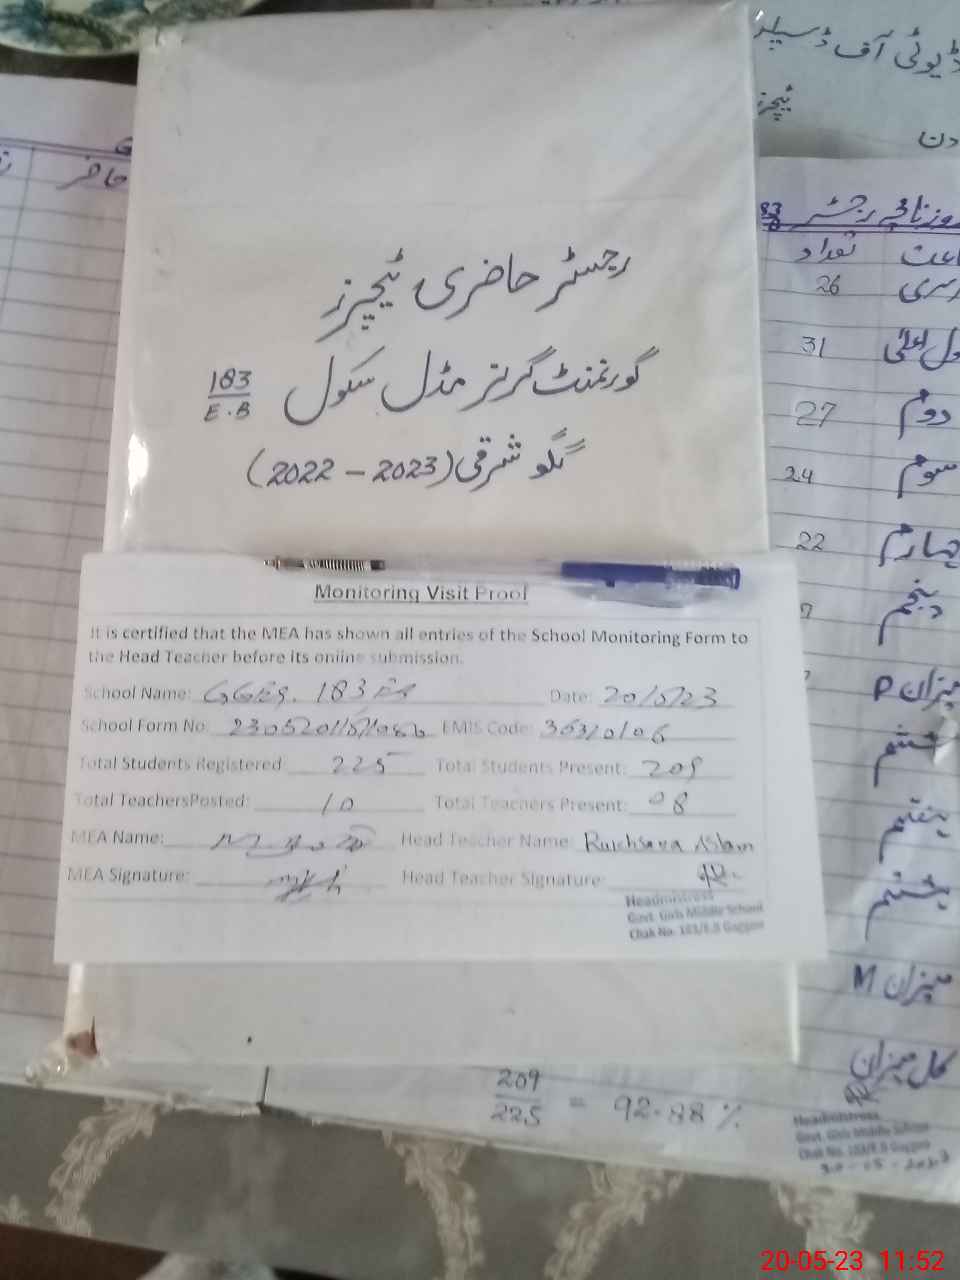 ڈیوٹی آف ڈسپلن
ٹیچرز
دن
حاضر
روزنامچہ رجسٹر 183
تعداد
26
31
دوم 27
سوم 24
چہارم 22
پنجم
میزان P
ششم
ہفتم
ہشتم
میزان M
کل میزان
رجسٹر حاضری ٹیچرز
گورنمنٹ گرلز مڈل سکول 183/E.B
گگو شرقی (2022 - 2023)
Monitoring Visit Proof
It is certified that the MEA has shown all entries of the School Monitoring Form to
the Head Teacher before its online submission.
School Name: GGES. 183 EB Date: 20/5/23
School Form No: EMIS Code:
Total Students Registered 225 Total Students Present: 209
Total TeachersPosted: 10 Total Teachers Present: 08
MEA Name: Head Teacher Name: Rukhsana Aslam
MEA Signature: Head Teacher Signature:
Headmistress
Govt. Girls Middle School
Chak No. 183/E.B Gaggoo
209/225 = 92.88 %
Headmistress
Govt. Girls Middle School
Chak No. 183/E.B Gaggoo
20-05-23 11:52